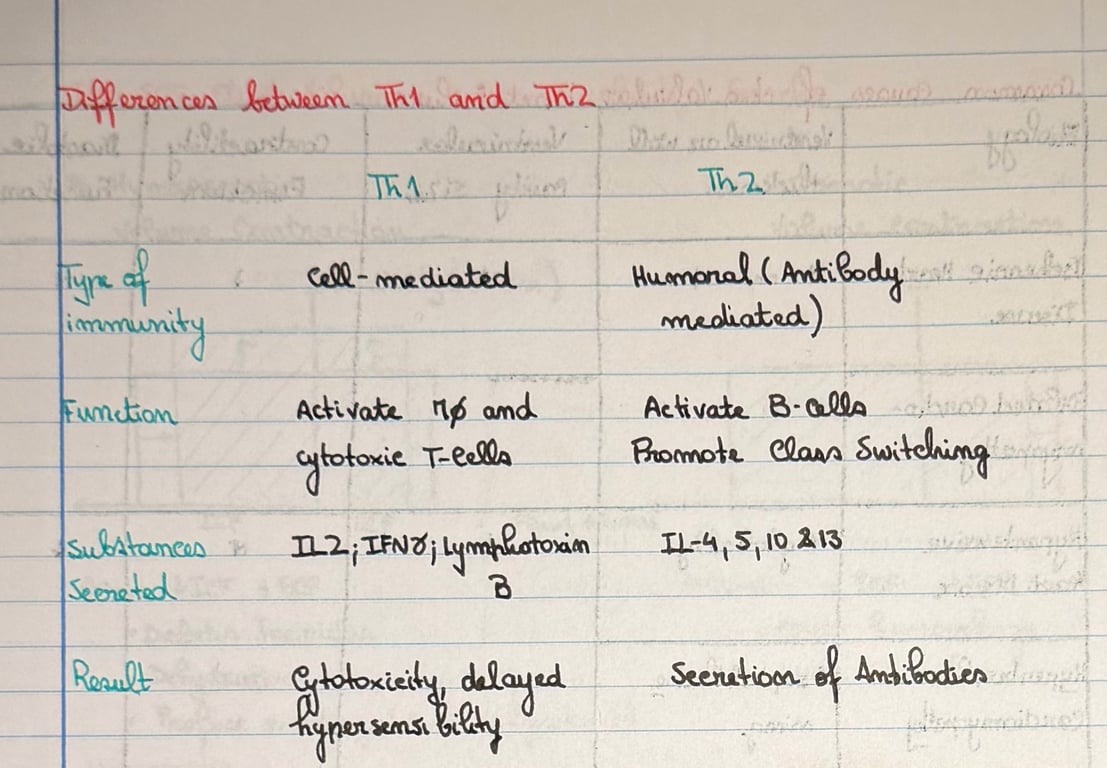 Differences between Th1 and Th2
Th1 Th2
Type of cell-mediated Humoral (Antibody
immunity mediated)
Function Activate Mφ and Activate B-cells
cytotoxic T-cells Promote Class Switching
Substances IL2; IFNγ; Lymphotoxin IL-4, 5, 10 & 13
Secreted B
Result Cytotoxicity, delayed Secretion of Antibodies
hypersensibility